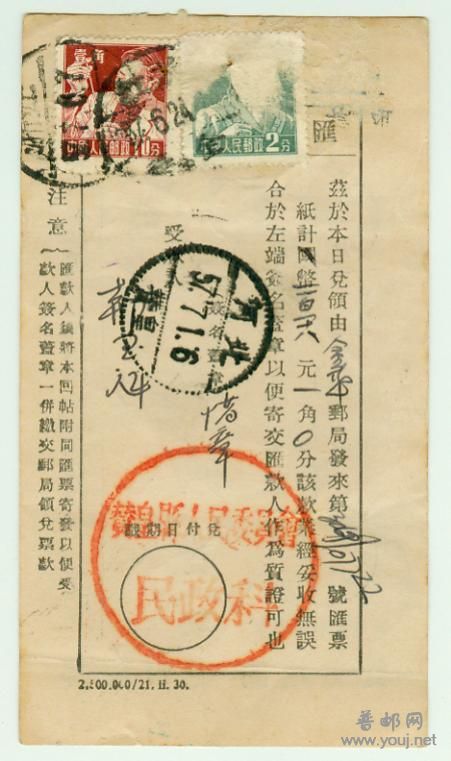 壹角
中國人民郵政10分
中國人民郵政2分
匯
茲於本日兌領由金華郵局發來第 號匯票
一紙計國幣 元一角0分該款業經妥收無誤
合於左端簽名蓋章以便寄交匯款人作爲質證可也
受
人
簽名蓋章
借章
河北
57.7.1.6
贊皇
贊皇縣人民委員會
民政科
兌付日期戳
注意
匯款人須將本回帖附同匯票寄發以便受
款人簽名蓋章一併繳交郵局領兌票款
2,500,000/21. II. 30.
普邮网
www.youj.net